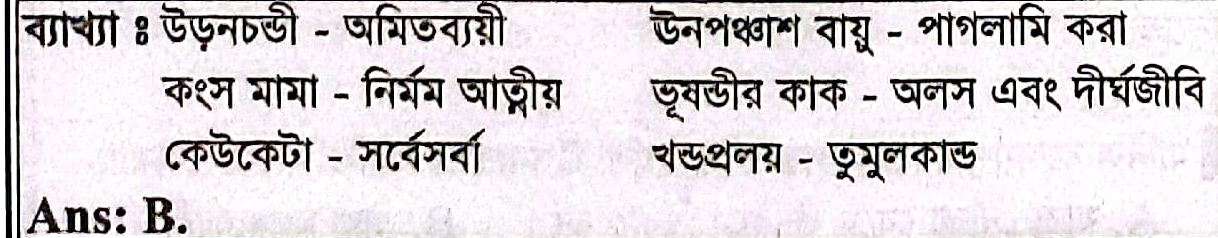 ব্যাখ্যা ঃ উড়নচন্ডী - অমিতব্যয়ী ঊনপঞ্চাশ বায়ু - পাগলামি করা
কংস মামা - নির্মম আত্নীয় ভূষন্ডীর কাক - অলস এবং দীর্ঘজীবি
কেউকেটা - সর্বেসর্বা খন্ডপ্রলয় - তুমুলকান্ড
Ans: B.